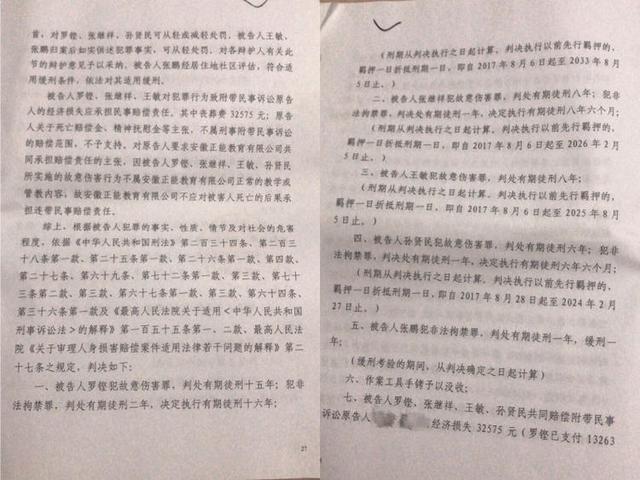 首，对罗铿、张继祥、孙贤民可从轻或减轻处罚。被告人王敏、
张鹏归案后如实供述犯罪事实，可从轻处罚。对各辩护人有关此
节的辩护意见予以采纳。被告人张鹏经居住地社区评估，符合适
用缓刑条件，依法对其适用缓刑。
被告人罗铿、张继祥、王敏对犯罪行为致附带民事诉讼原告
人的经济损失应承担民事赔偿责任。其中丧葬费 32575 元；原告
人关于死亡赔偿金、精神抚慰金等主张，不属刑事附带民事诉讼
的赔偿范围，不予支持。对原告人要求安徽正能教育有限公司共
同承担赔偿责任的主张，因被告人罗铿、张继祥、王敏、孙贤民
所实施的故意伤害行为不属安徽正能教育有限公司正常的教学或
管教内容，故安徽正能教育有限公司不应对被害人死亡的后果承
担连带民事赔偿责任。
综上，根据被告人犯罪的事实、性质、情节及对社会的危害
程度，依据《中华人民共和国刑法》第二百三十四条、第二百三
十八条第一款、第二十五条第一款、第二十六条第一款、第四款、
第二十七条、第六十九条、第七十二条第一款、第三款、第七十
三条第二款、第三款、第六十七条第一款、第三款、第六十四条、
第三十六条第一款及《最高人民法院关于适用<中华人民共和国
刑事诉讼法>的解释》第一百五十五条第一、二款、最高人民法
院《关于审理人身损害赔偿案件适用法律若干问题的解释》第二
十七条之规定，判决如下：
一、被告人罗铿犯故意伤害罪，判处有期徒刑十五年；犯非
法拘禁罪，判处有期徒刑二年，决定执行有期徒刑十六年；
27
(刑期从判决执行之日起计算。判决执行以前先行羁押的，
羁押一日折抵刑期一日，即自 2017 年 8 月 6 日起至 2033 年 8 月
5 日止。)
二、被告人张继祥犯故意伤害罪，判处有期徒刑八年；犯非
法拘禁罪，判处有期徒刑一年，决定执行有期徒刑八年六个月；
(刑期从判决执行之日起计算。判决执行以前先行羁押的，
羁押一日折抵刑期一日，即自 2017 年 8 月 6 日起至 2026 年 2 月
5 日止。)
三、被告人王敏犯故意伤害罪，判处有期徒刑八年；
(刑期从判决执行之日起计算。判决执行以前先行羁押的，
羁押一日折抵刑期一日，即自 2017 年 8 月 6 日起至 2025 年 8 月
5 日止。)
四、被告人孙贤民犯故意伤害罪，判处有期徒刑六年；犯非
法拘禁罪，判处有期徒刑一年，决定执行有期徒刑六年六个月；
(刑期从判决执行之日起计算。判决执行以前先行羁押的，
羁押一日折抵刑期一日，即自 2017 年 8 月 28 日起至 2024 年 2 月
27 日止。)
五、被告人张鹏犯非法拘禁罪，判处有期徒刑一年，缓刑一
年；
(缓刑考验的期间，从判决确定之日起计算)
六、作案工具手铐予以没收；
七、被告人罗铿、张继祥、王敏、孙贤民共同赔偿附带民事
诉讼原告人 经济损失 32575 元（罗铿已支付 13263